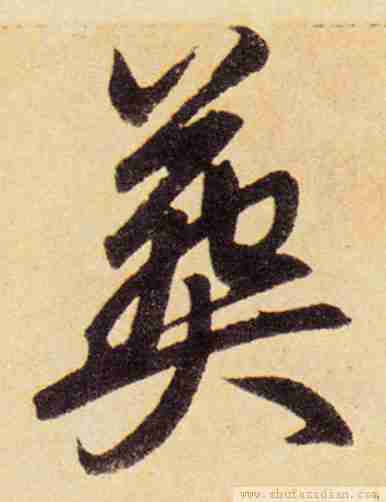 冀
www.shufazidian.com